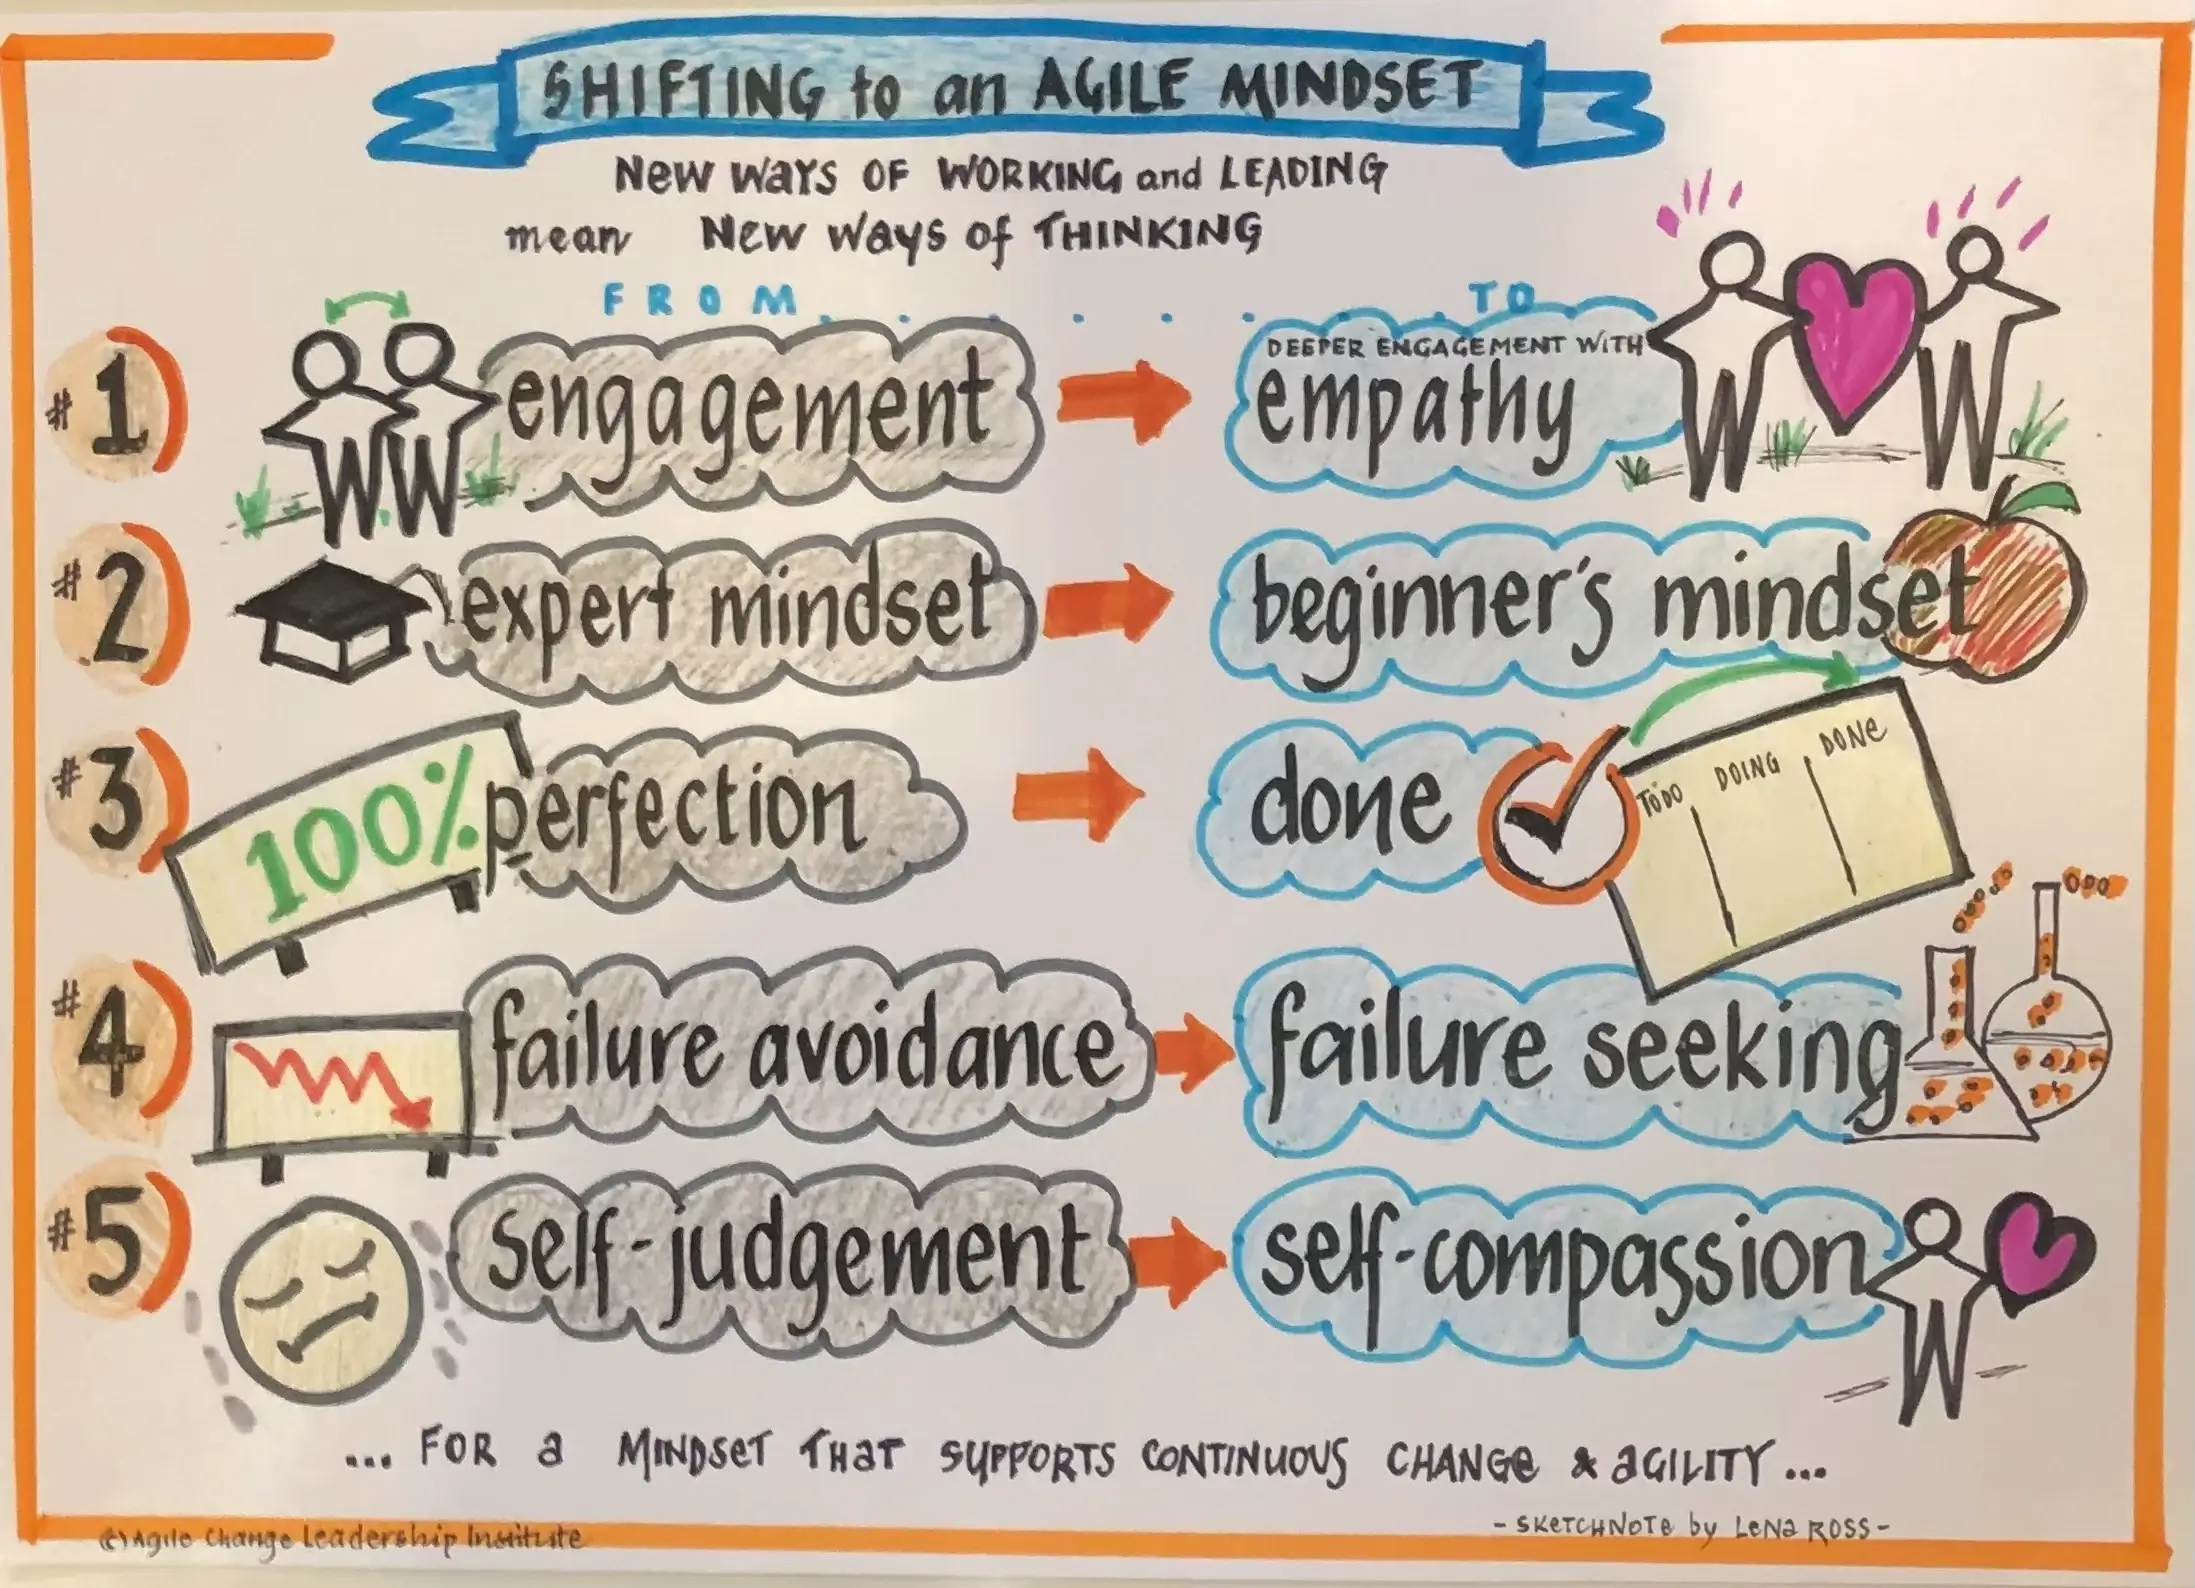 SHIFTING to an AGILE MINDSET
New Ways of WORKING and LEADING
mean New Ways of THINKING
FROM........TO
#1 engagement DEEPER ENGAGEMENT WITH
empathy
#2 expert mindset beginner's mindset
#3 100% perfection done TODO DOING DONE
#4 failure avoidance failure seeking
#5 self-judgement self-compassion
... FOR a MINDSET THAT SUPPORTS CONTINUOUS CHANGE & AGILITY ...
(c) Agile Change Leadership Institute
- SKETCHNOTE by LENA ROSS -